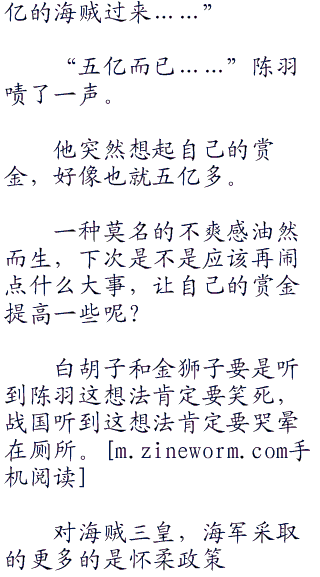 亿的海贼过来……”
“五亿而已……”陈羽
啧了一声。
他突然想起自己的赏
金，好像也就五亿多。
一种莫名的不爽感油然
而生，下次是不是应该再闹
点什么大事，让自己的赏金
提高一些呢？
白胡子和金狮子要是听
到陈羽这想法肯定要笑死，
战国听到这想法肯定要哭晕
在厕所。[m.zineworm.com手
机阅读]
对海贼三皇，海军采取
的更多的是怀柔政策